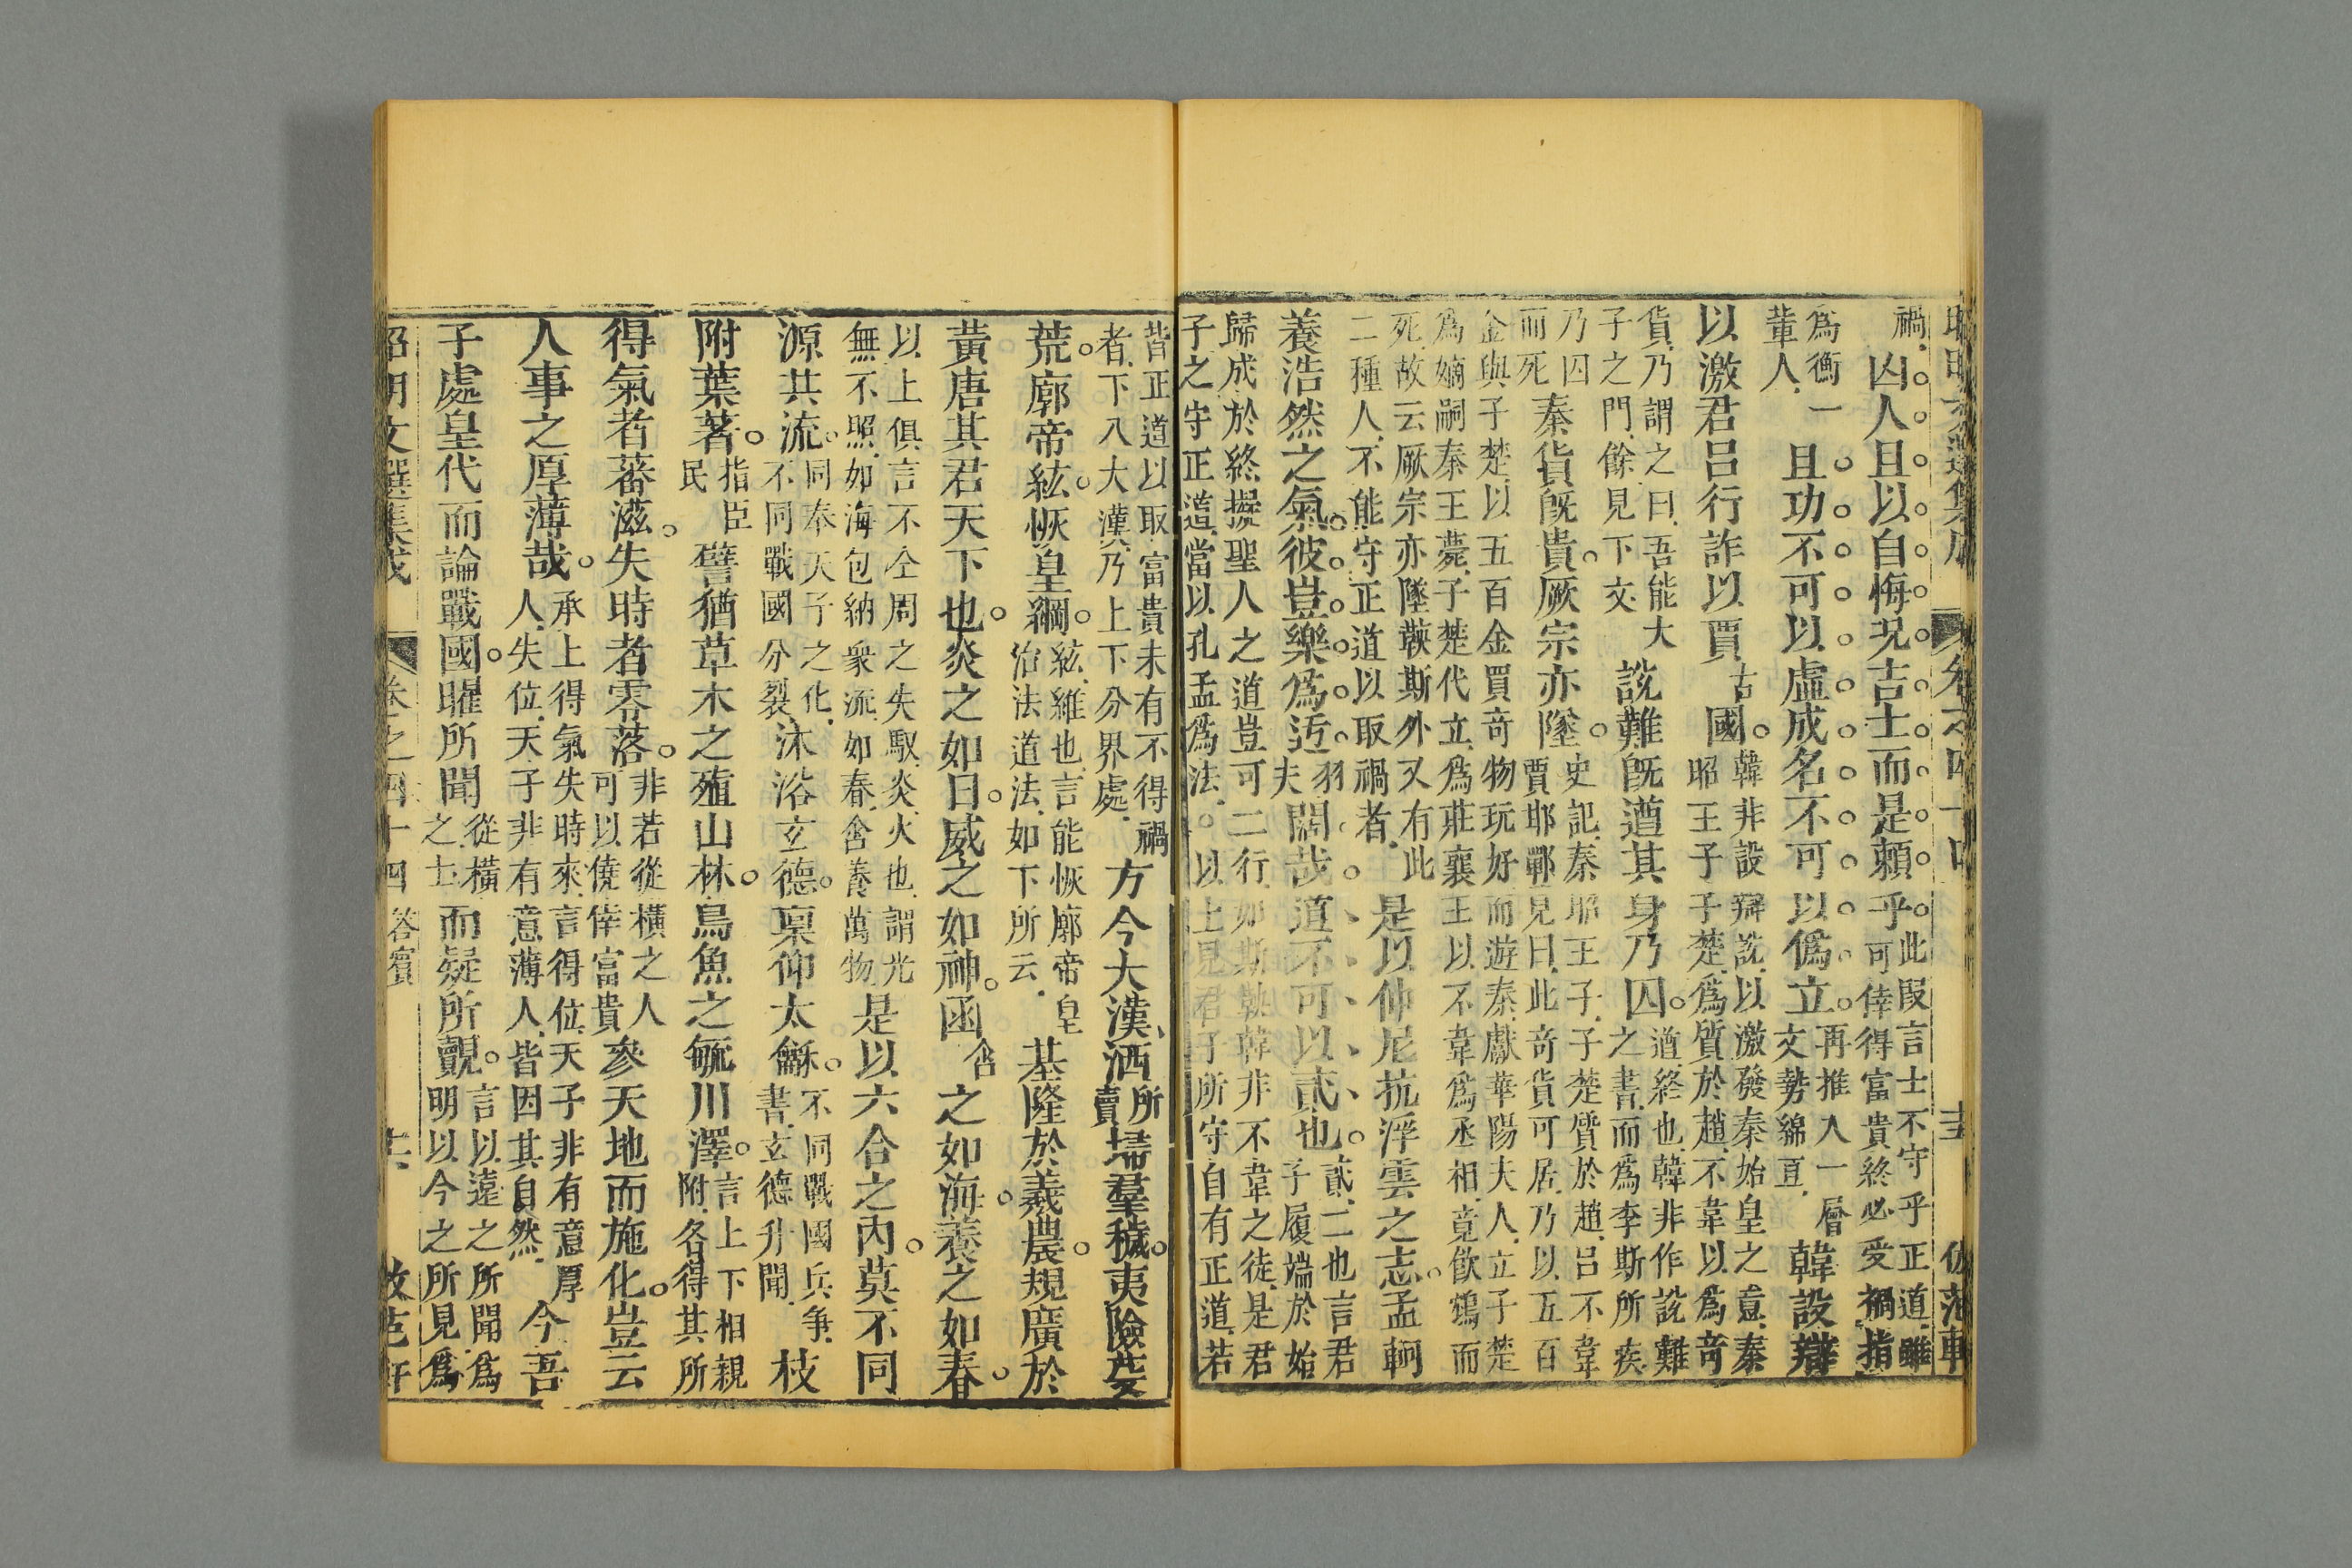 卷之四十
禍凶人且以自悔况吉士而是賴乎此段言士不守乎正道雖可倖得富貴終必受禍指
爲衡一輩人且功不可以虛成名不可以僞立再推入一層文勢綿亘韓設辯
以激君呂行詐以賈古國韓非設辯說以激發秦始皇之意秦昭王子子楚爲質於趙不韋以爲奇
貨乃謂之曰吾能大子之門餘見下文說難旣遒其身乃囚遒終也韓非作說難之書而爲李斯所疾
乃囚而死秦貨旣貴厥宗亦墜史記秦昭王子子楚質於趙呂不韋賈耶鄲見曰此奇貨可居乃以五百
金與子楚以五百金買奇物玩好而遊秦獻華陽夫人立子楚爲嫡嗣秦王薨子楚代立爲莊襄王以不韋爲丞相竟飲鴆而
死故云厥宗亦墜鞅斯外又有此二種人不能守正道以取禍者是以仲尼抗浮雲之志孟軻
養浩然之氣彼豈樂爲迂羽夫闊哉道不可以貳也貳二也言君子履端於始
歸成於終擬聖人之道豈可二行如斯鞅韓非不韋之徒是君子之守正道當以孔孟爲法。以上見君子所守自有正道若
昔正道以取富貴未有不得禍者下入大漢乃上下分界處方今大漢洒所賣埽羣穢夷險芟
荒廓帝紘恢皇綱紘維也言能恢廓帝皇治法道法如下所云基隆於羲農規廣於
黃唐其君天下也炎之如日威之如神函含之如海養之如春
以上俱言不仝周之失馭炎火也謂光無不照如海包納衆流如春含養萬物是以六合之內莫不同
源共流同奉天子之化不同戰國分裂沐浴玄德稟仰太龢不同戰國兵爭書玄德升聞枝
附葉著指臣民譬猶草木之殖山林鳥魚之毓川澤言上下相親附各得其所
得氣者蕃滋失時者零落非若從橫之人可以僥倖富貴參天地而施化豈云
人事之厚薄哉承上得氣失時來言得位天子非有意厚人失位天子非有意薄人皆因其自然今吾
子處皇代而論戰國曜所聞從橫之士而疑所覿言以遠之所聞爲明以今之所見爲
昭明文選集成 卷之四十四 答賓